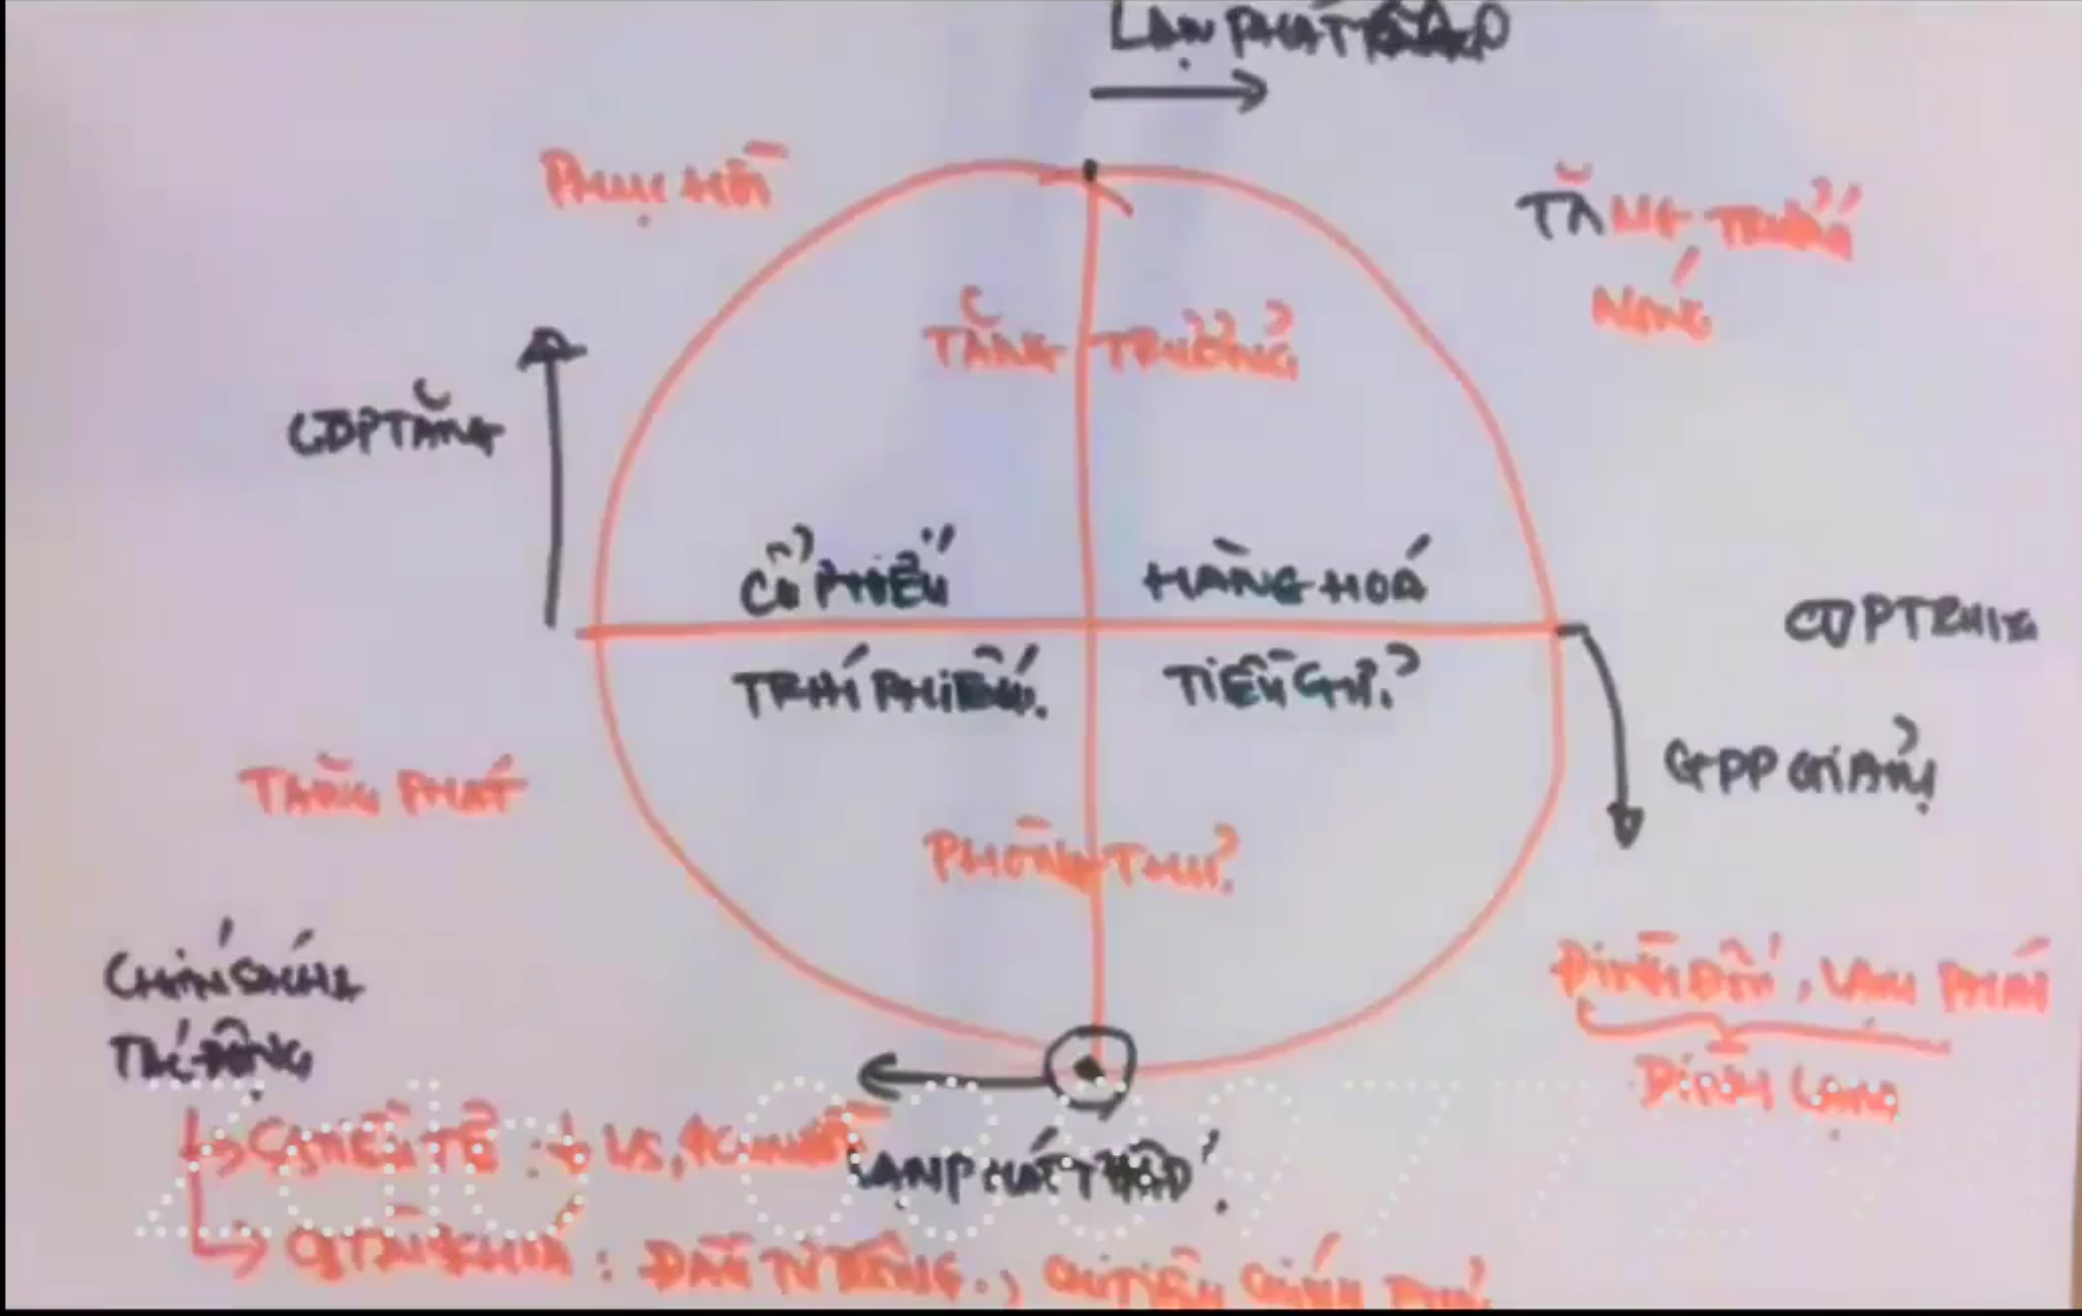 LẠN PHÁT
PHỤC HỒI
TĂNG TRƯỞ
NÓNG
TĂNG TRƯỞNG
GDP TĂNG
CỔ PHIẾU
HÀNG HOÁ
GDP TRUNG
TRÁI PHIẾU.
TIỀN GỬI
GDP GIẢM
PHÒNG THỦ
ĐÌNH ĐỐN, LẠM PHÁT
ĐÌNH LẠM
CHÍNH SÁCH
TÁC ĐỘNG
↳ CS TIỀN TỆ : ↓ LS,
LẠM PHÁT THẤP
↳ CS TÀI KHOÁ : ĐẦU TƯ CÔNG., CHI TIÊU CHÍNH PHỦ